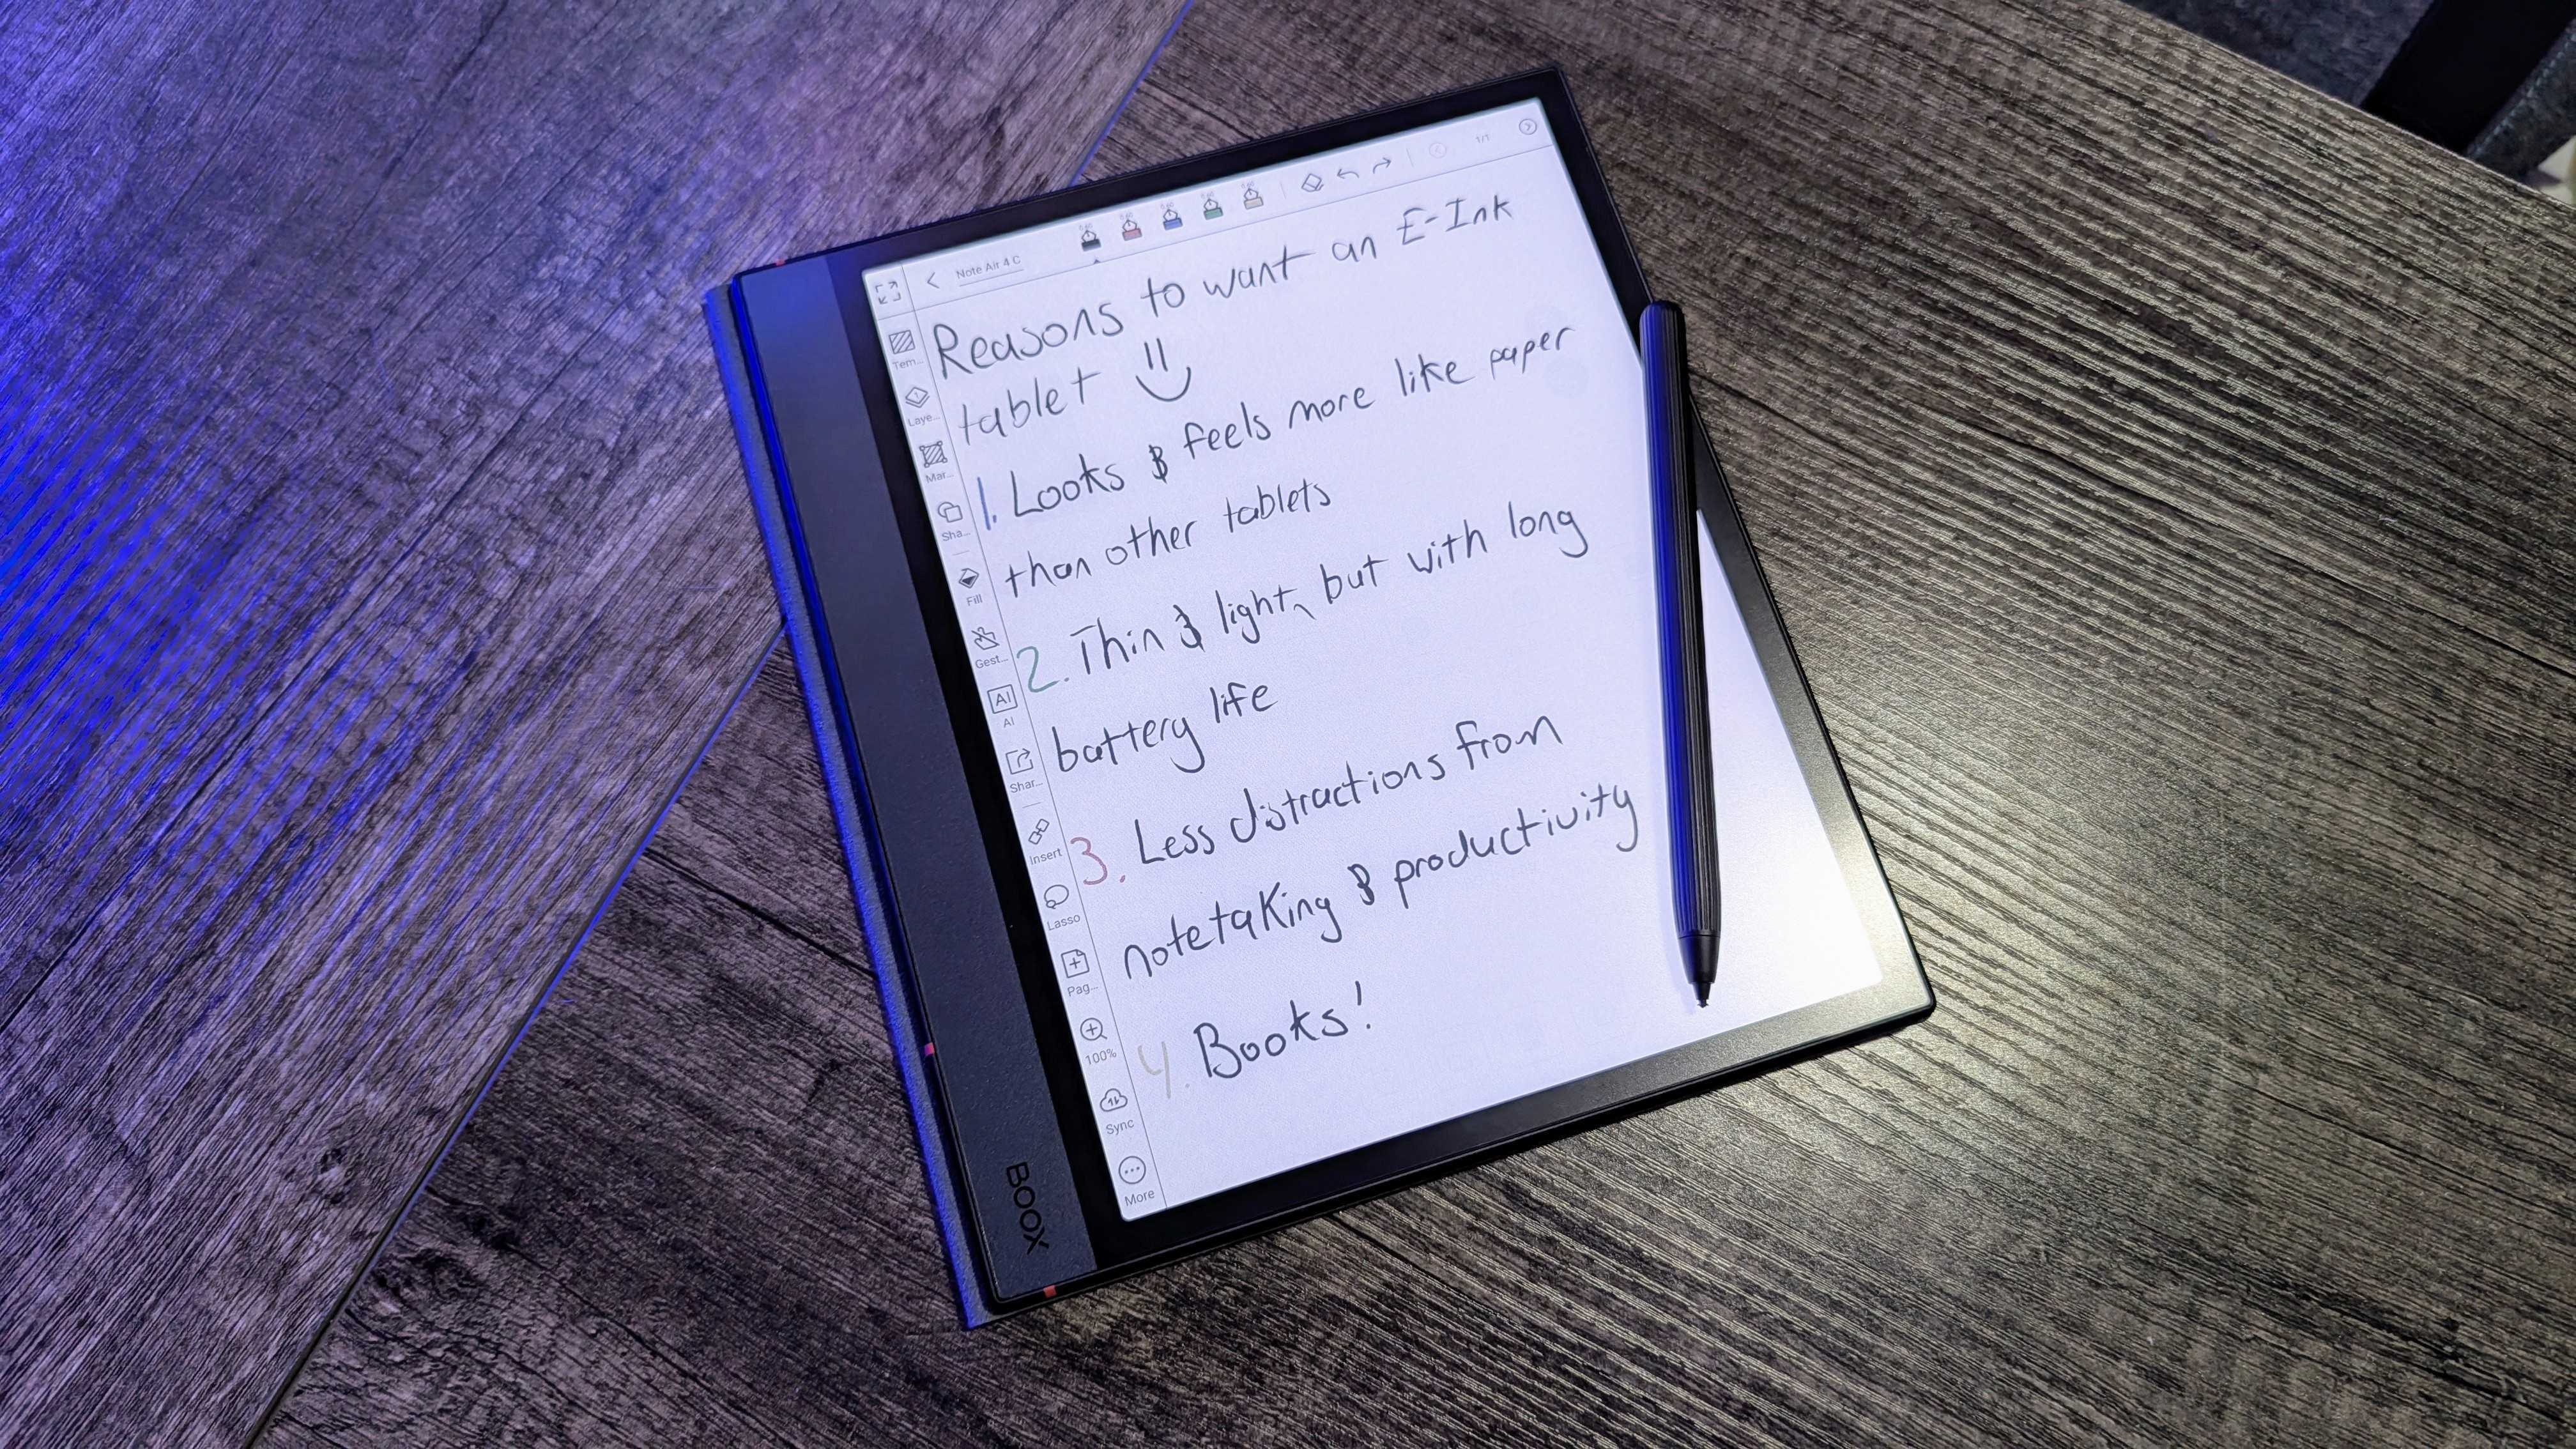 Note Air 4 C
1/1
Reasons to want an E-Ink
tablet
1. Looks & feels more like paper
than other tablets
2. Thin & light, but with long
battery life
3. Less distractions from
notetaking & productivity
4. Books!
Tem...
Laye...
Mar...
Sha...
Fill
Gest...
AI
AI
Shar...
Insert
Lasso
Pag...
100%
Sync
More
BOOX